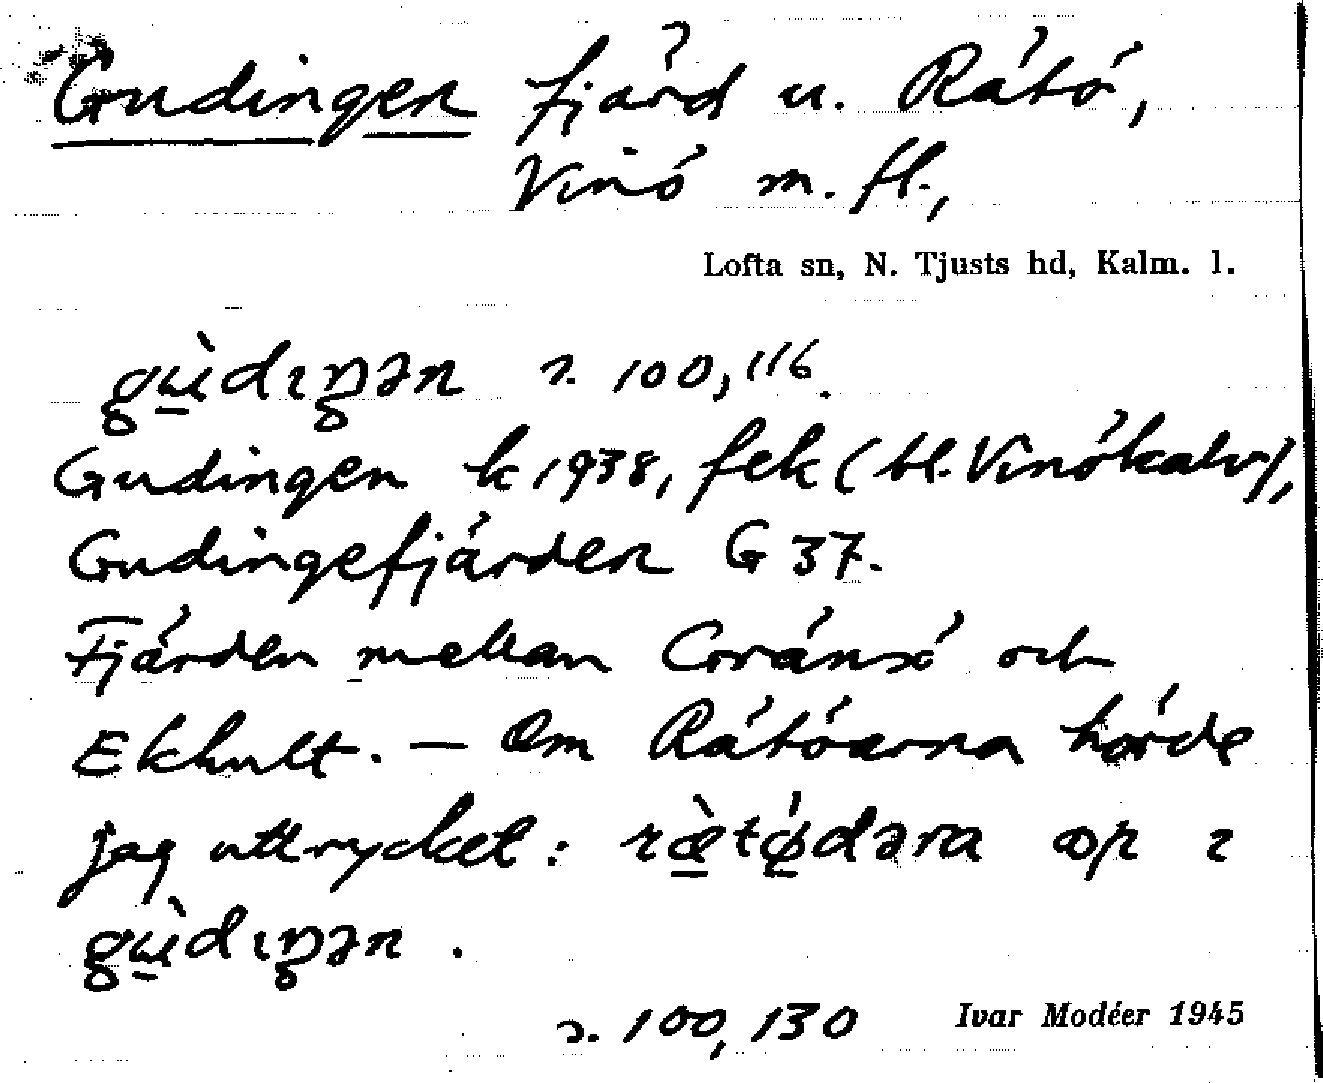 Gudingen fjärd u. Rätö,
Vinö m. fl.,
Lofta sn, N. Tjusts hd, Kalm. l.
gɯ̀dıŋən 2. 100, 116.
Gudingen k 1938, fek (bl. Vinökalv),
Gudingefjärden G 37.
Fjärden mellan Gränsö och
Ekhult. — Om Rätöarna hörde
jag uttrycket: rætǿdəra op ı
gɯ̀dıŋən.
2. 100, 130
Ivar Modéer 1945